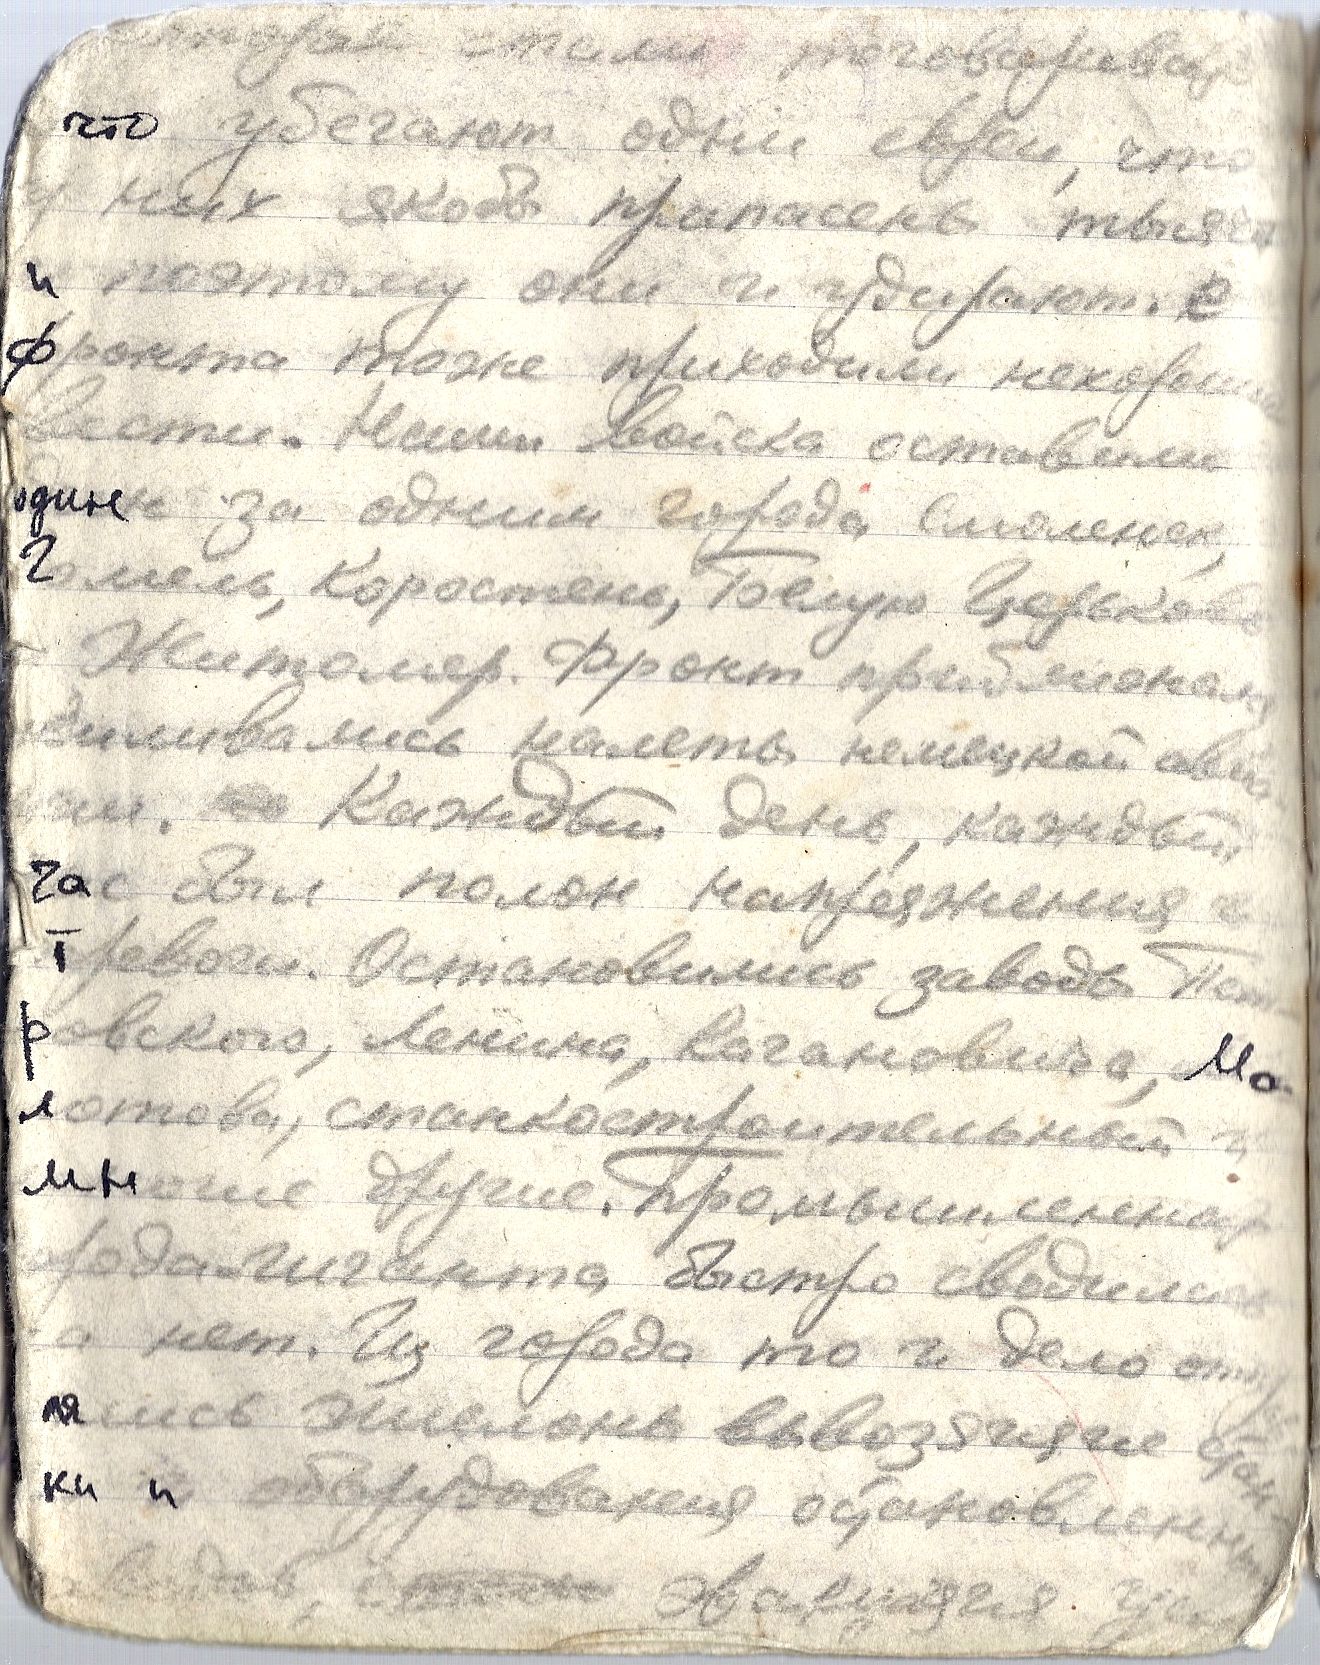 которые стали поговаривать
что убегают одни евреи, что
у них якобы припасены тысячи
и поэтому они и удирают. С
фронта тоже приходили нехорошие
вести. Наши войска оставили
один за одним города Смоленск,
Гомель, Коростень, Белую Церковь
Житомир. Фронт приближался
усиливались налеты немецкой авиа
ции. Каждый день, каждый
час был полон напряжения и
тревоги. Остановились заводы Пет
ровского, Ленина, Кагановича, Мо
лотова, станкостроительный и
многие другие. Промышленная
города-гиганта быстро сводилась
на нет. Из города то и дело отправ
лялись эшелоны вывозящие стан
ки и оборудования остановленных
заводов, эвакуация